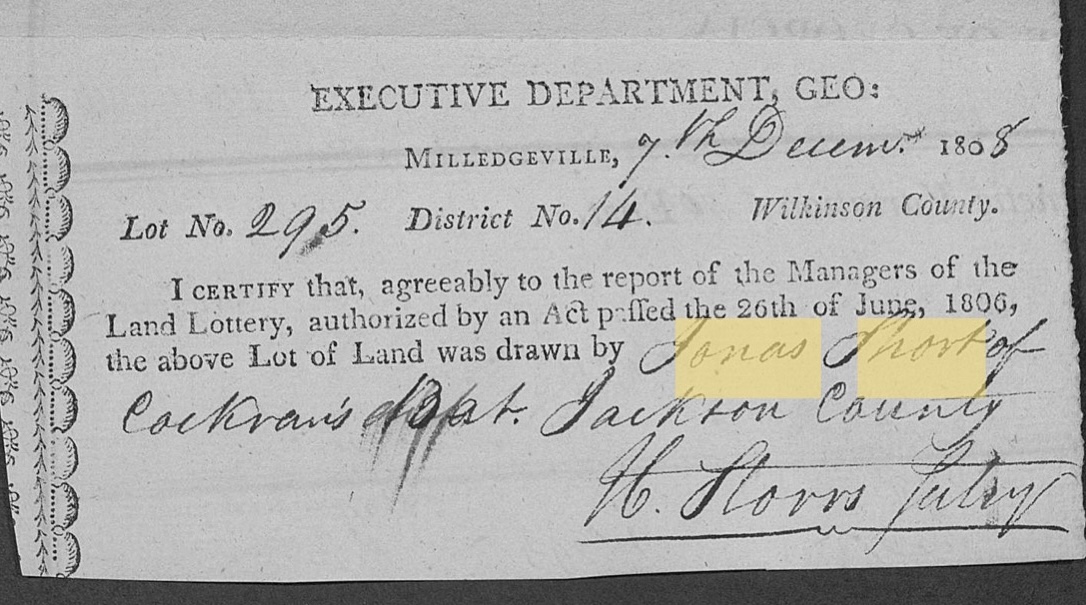 EXECUTIVE DEPARTMENT, GEO:
MILLEDGEVILLE, 7.th Decem.r 1808
Lot No. 295. District No. 14. Wilkinson County.
I CERTIFY that, agreeably to the report of the Managers of the
Land Lottery, authorized by an Act paſſed the 26th of June, 1806,
the above Lot of Land was drawn by Jonas Short of
Cockran's Jackson County
H. Storrs